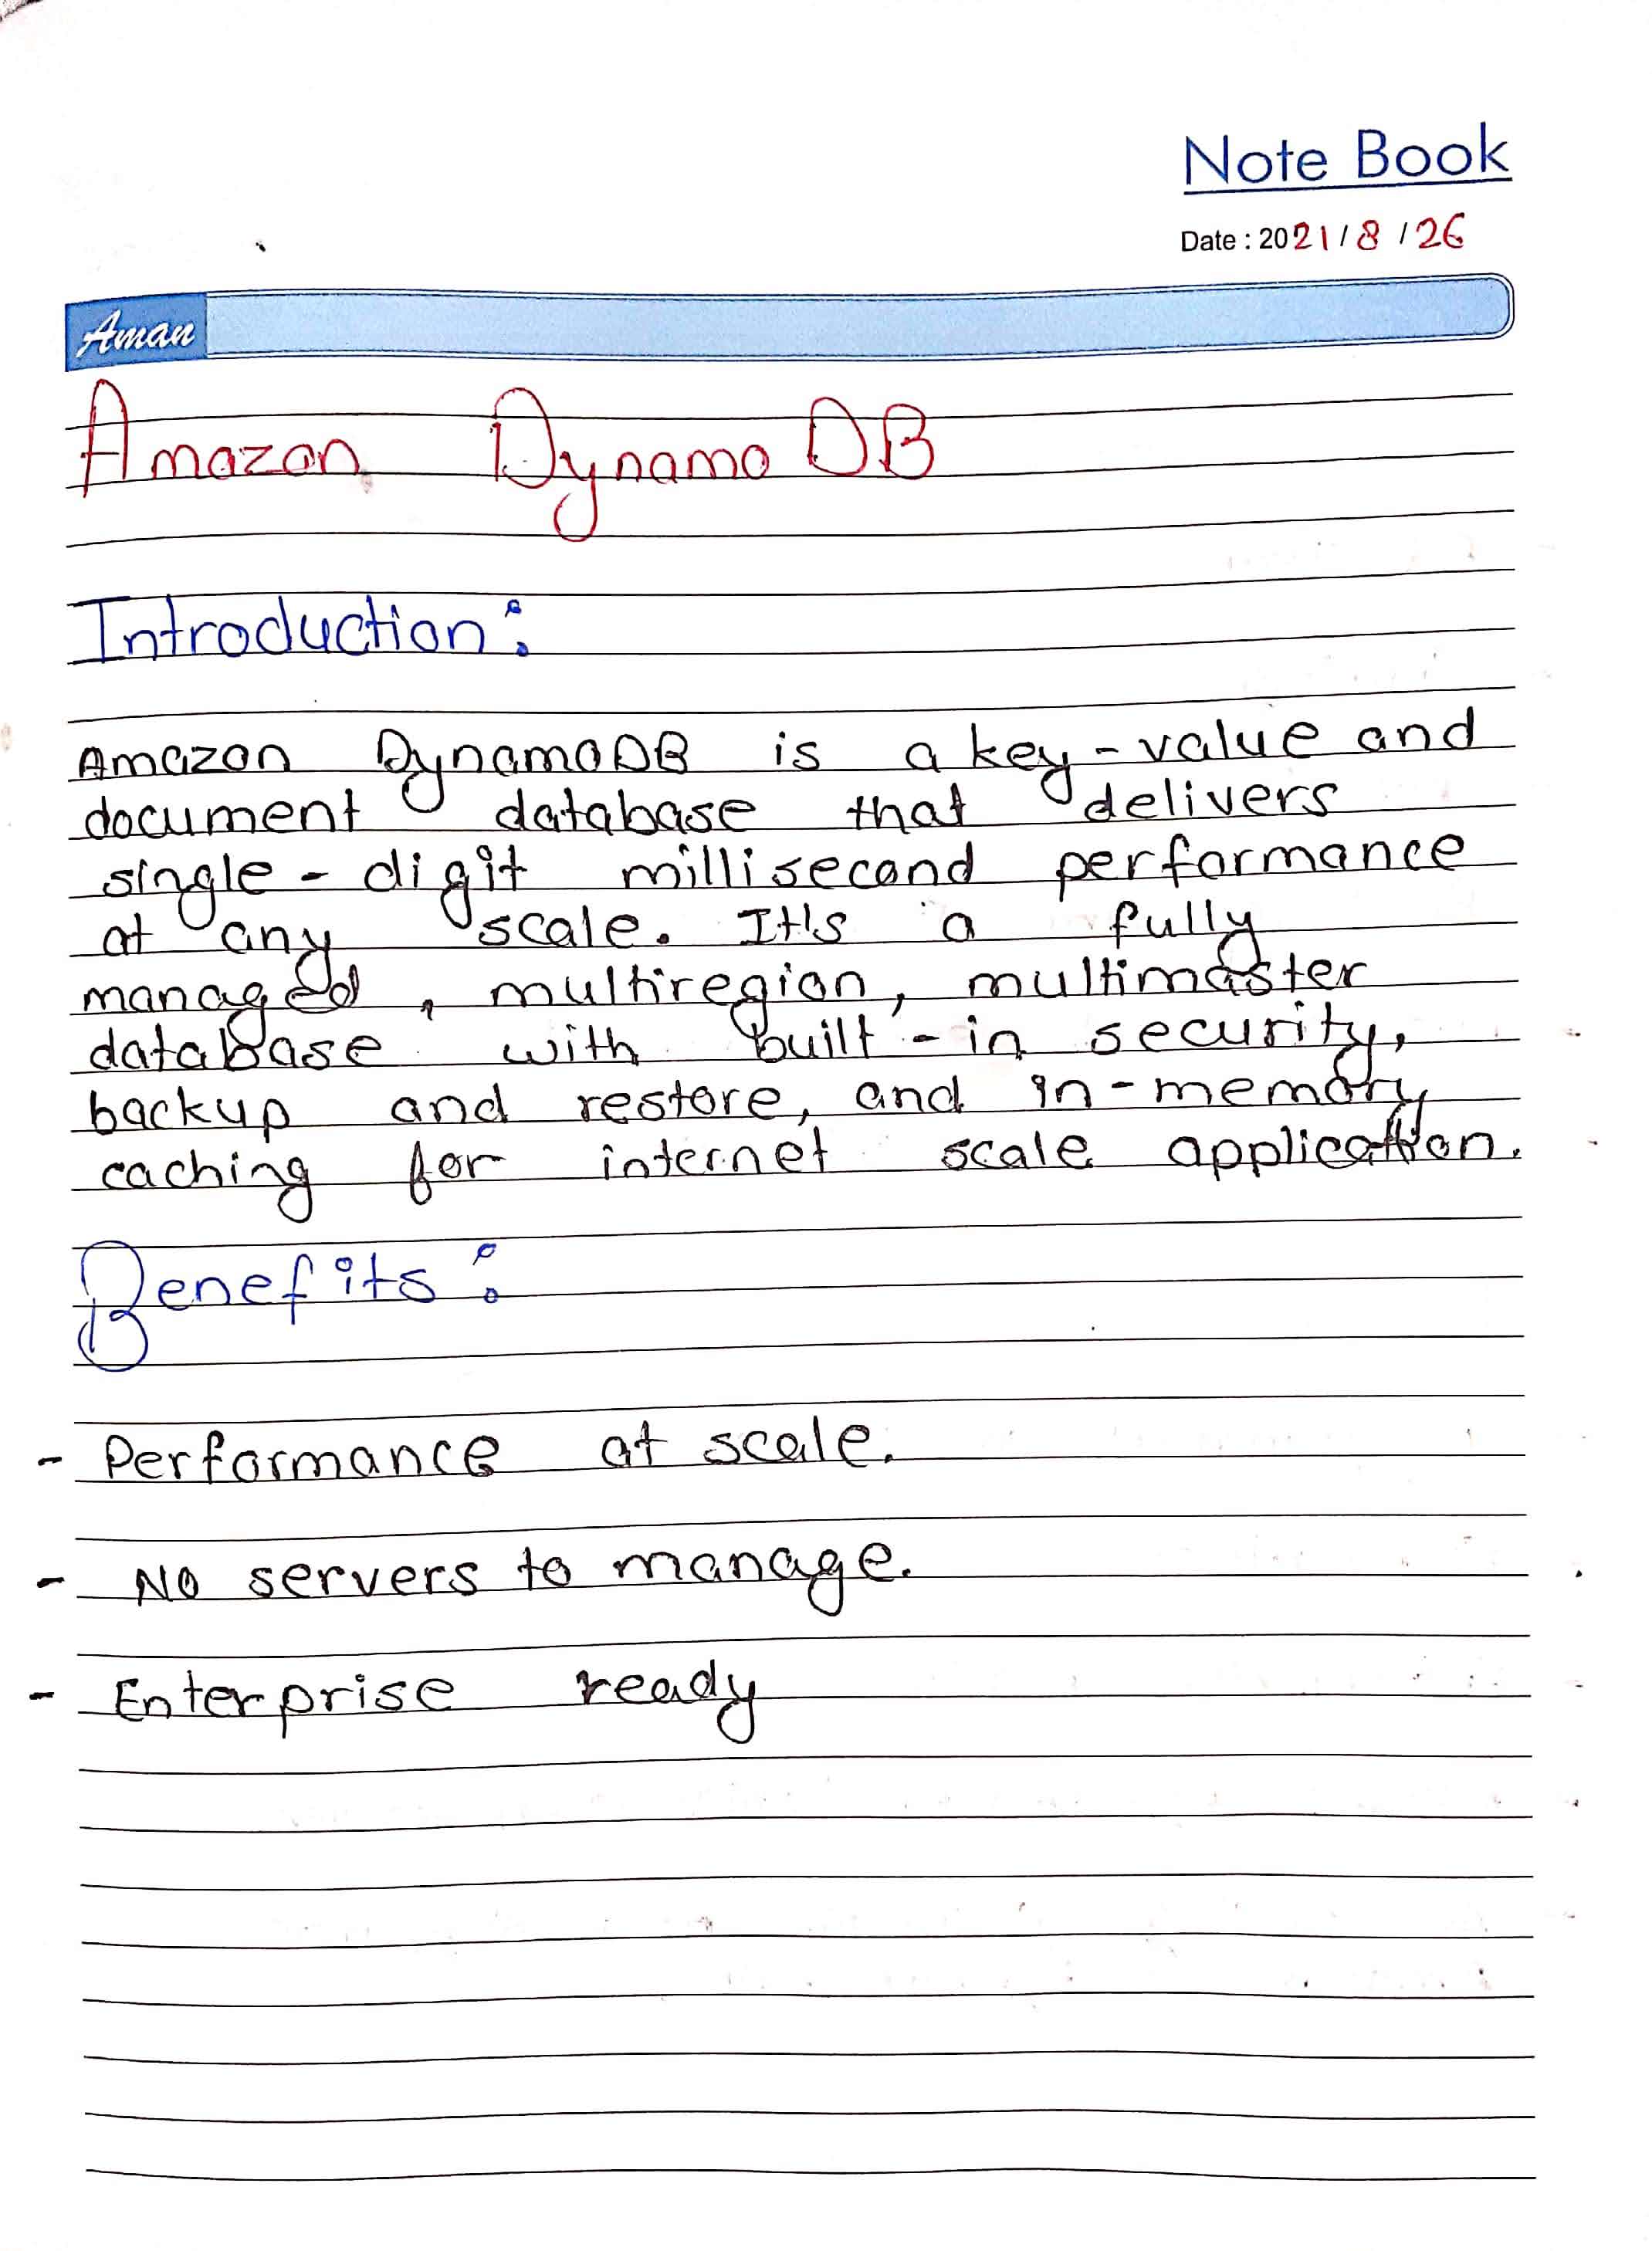 Note Book
Date : 2021/8/26
Aman
Amazon DynamoDB
Introduction:
Amazon DynamoDB is a key-value and
document database that delivers
single-digit millisecond performance
at any scale. It's a fully
managed, multiregion, multimaster
database with built-in security,
backup and restore, and in-memory
caching for internet scale application.
Benefits:
- Performance at scale.
- No servers to manage.
- Enterprise ready